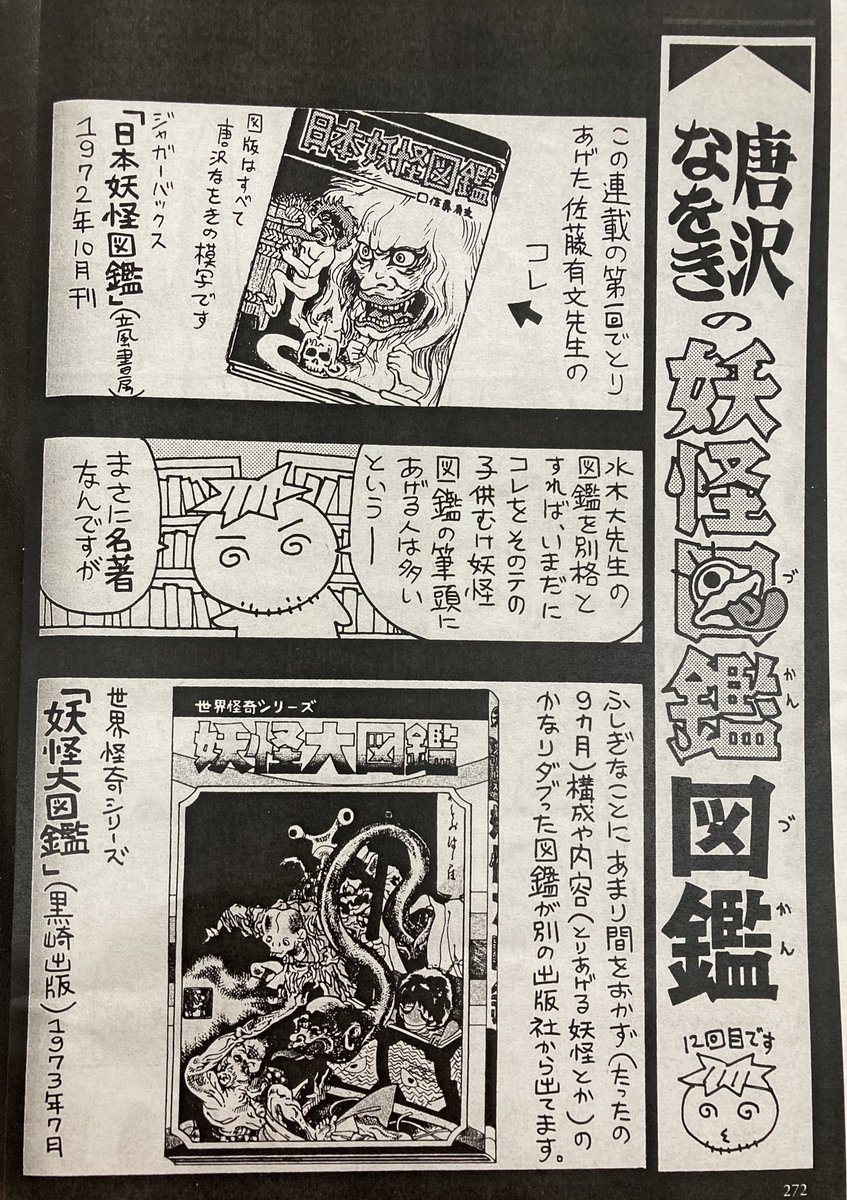 唐沢
なをき
の
妖怪図鑑
づ
かん
図鑑
づ
かん
12回目です
この連載の第一回でとり
あげた佐藤有文先生の
コレ
日本妖怪図鑑
図版はすべて
唐沢なをきの模写です
ジャガーバックス
「日本妖怪図鑑」(立風書房)
1972年10月刊
水木大先生の
図鑑を別格と
すれば、いまだに
コレをそのテの
子供むけ妖怪
図鑑の筆頭に
あげる人は多い
というー
まさに名著
なんですが
ふしぎなことに あまり間をおかず(たったの
9ヵ月)構成や内容(とりあげる妖怪とか)の
かなりダブった図鑑が別の出版社から出てます。
世界怪奇シリーズ
妖怪大図鑑
世界怪奇シリーズ
「妖怪大図鑑」(黒崎出版)1973年7月
272